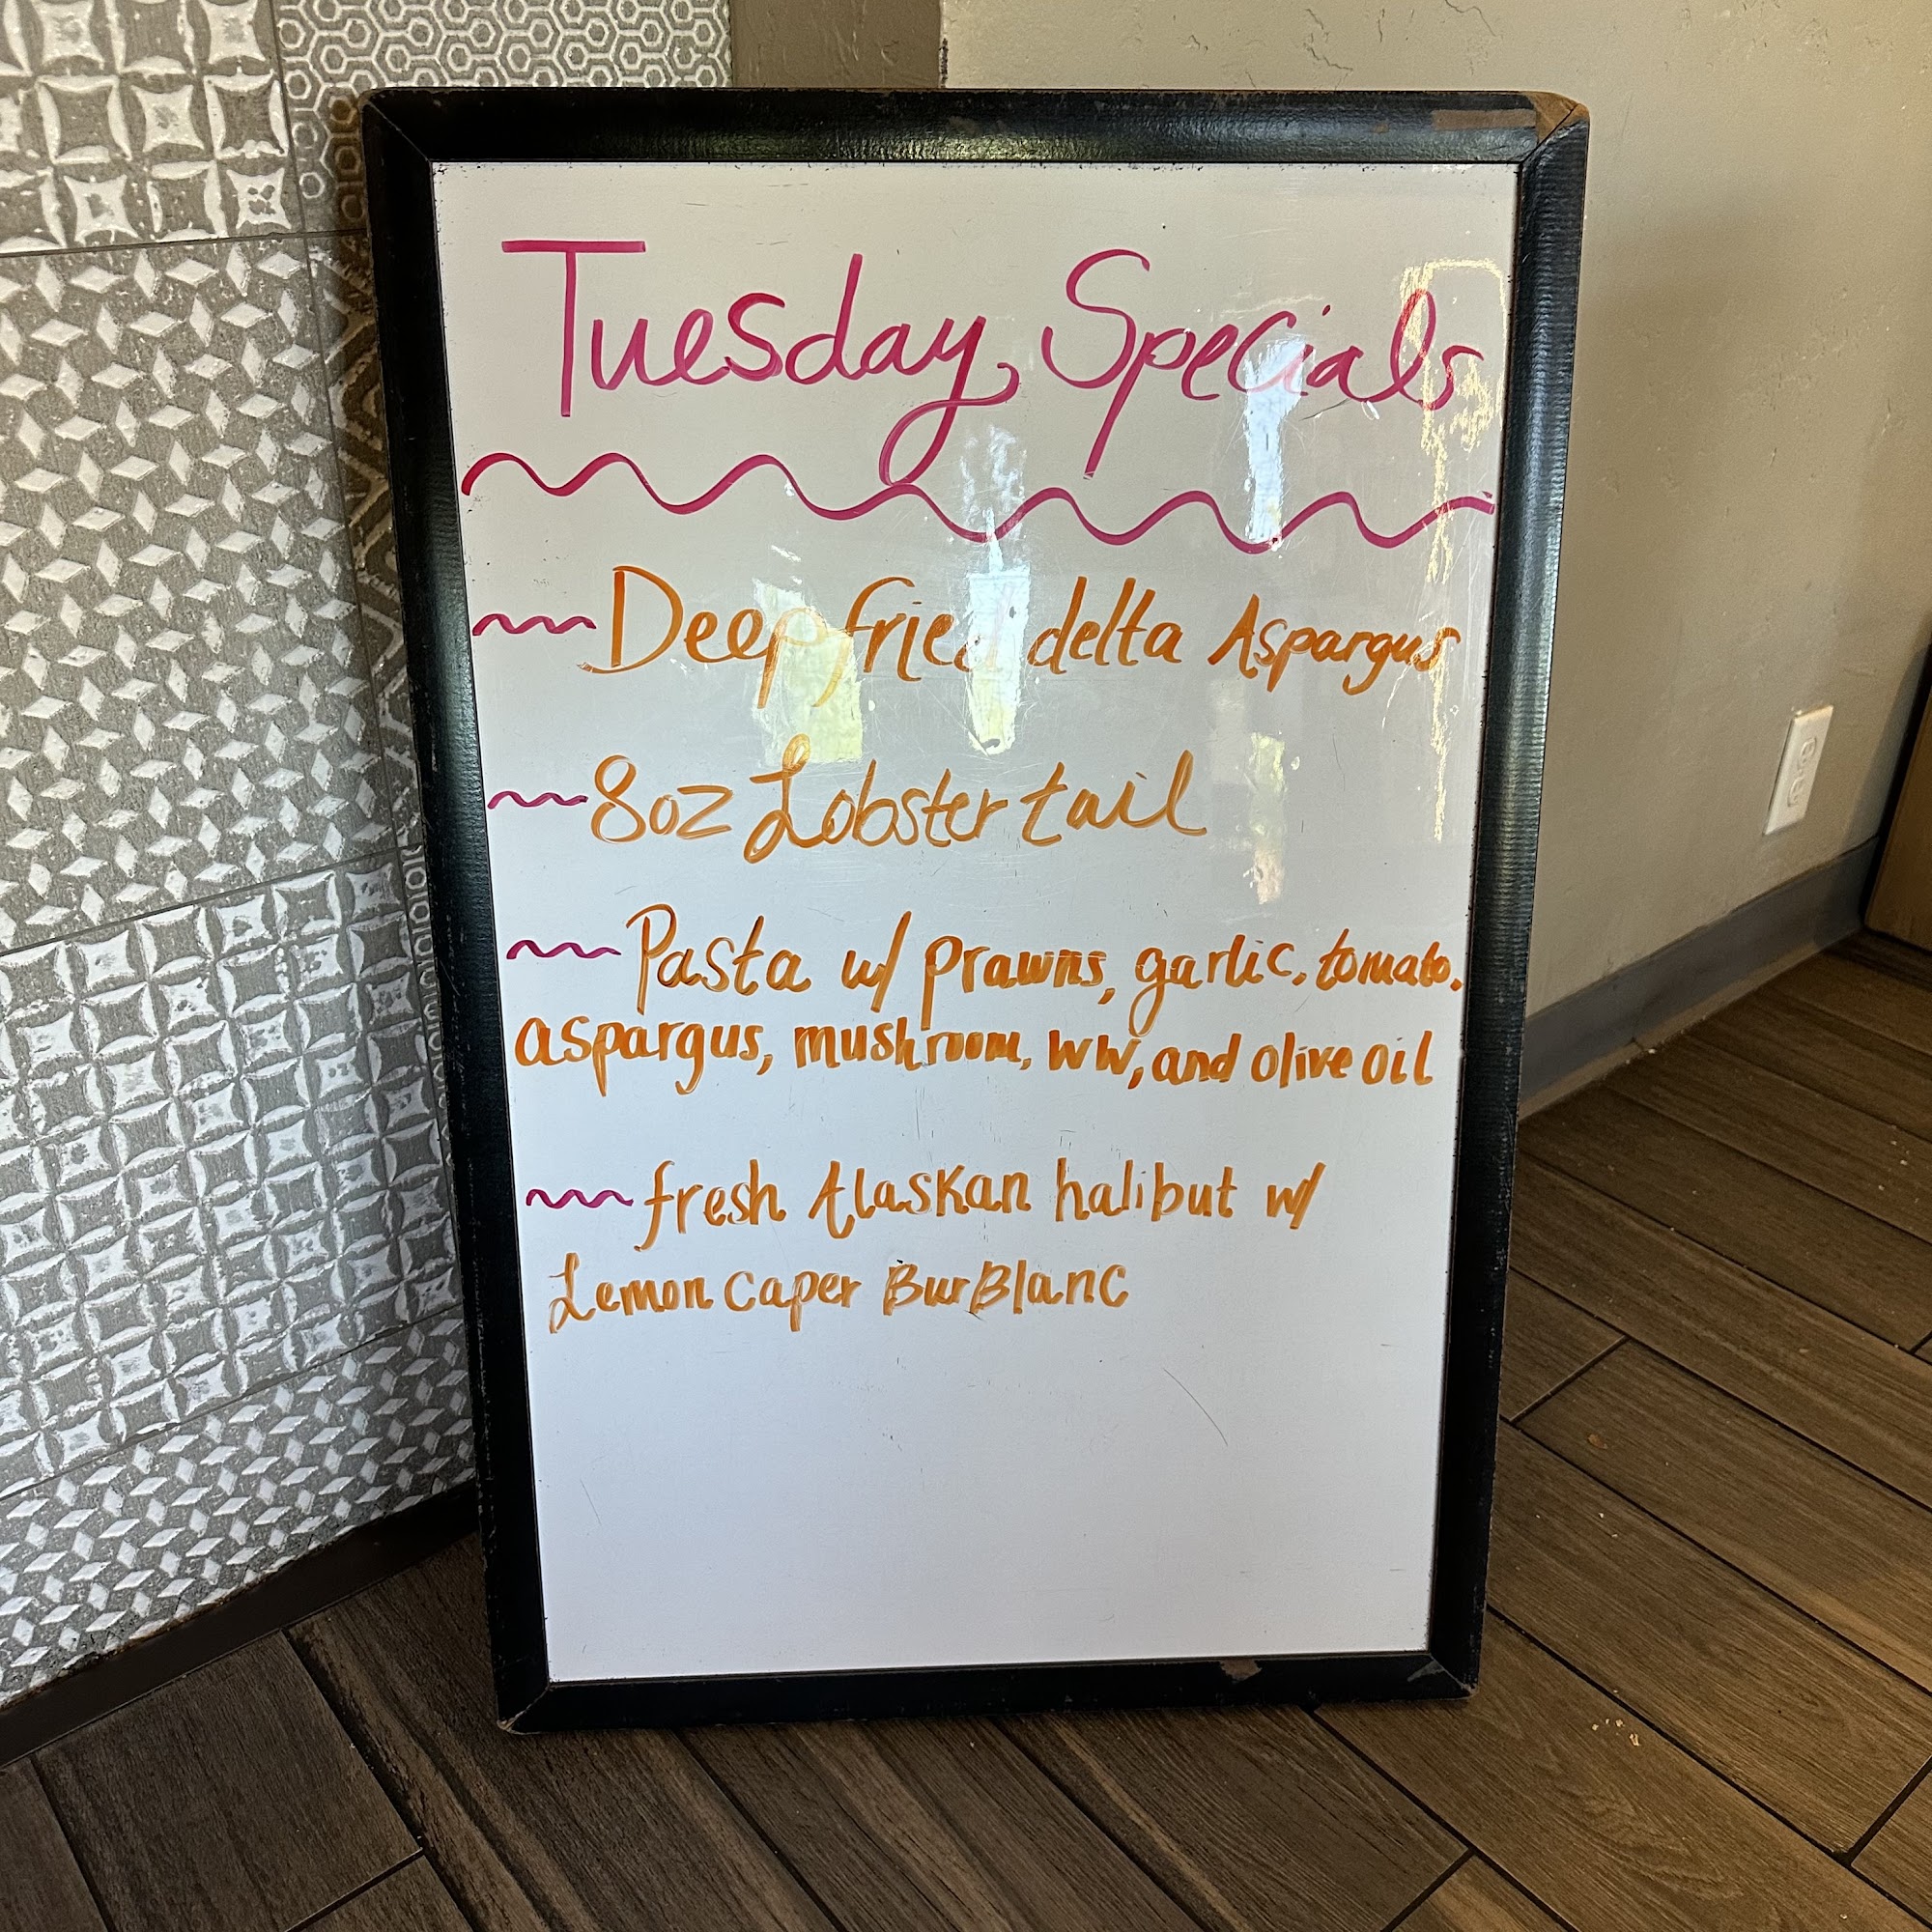 Tuesday Specials
Deep fried delta Aspargus
8oz Lobster tail
Pasta w/ prawns, garlic, tomato,
aspargus, mushroom, WW, and olive oil
fresh Alaskan halibut w/
Lemon caper BurBlanc